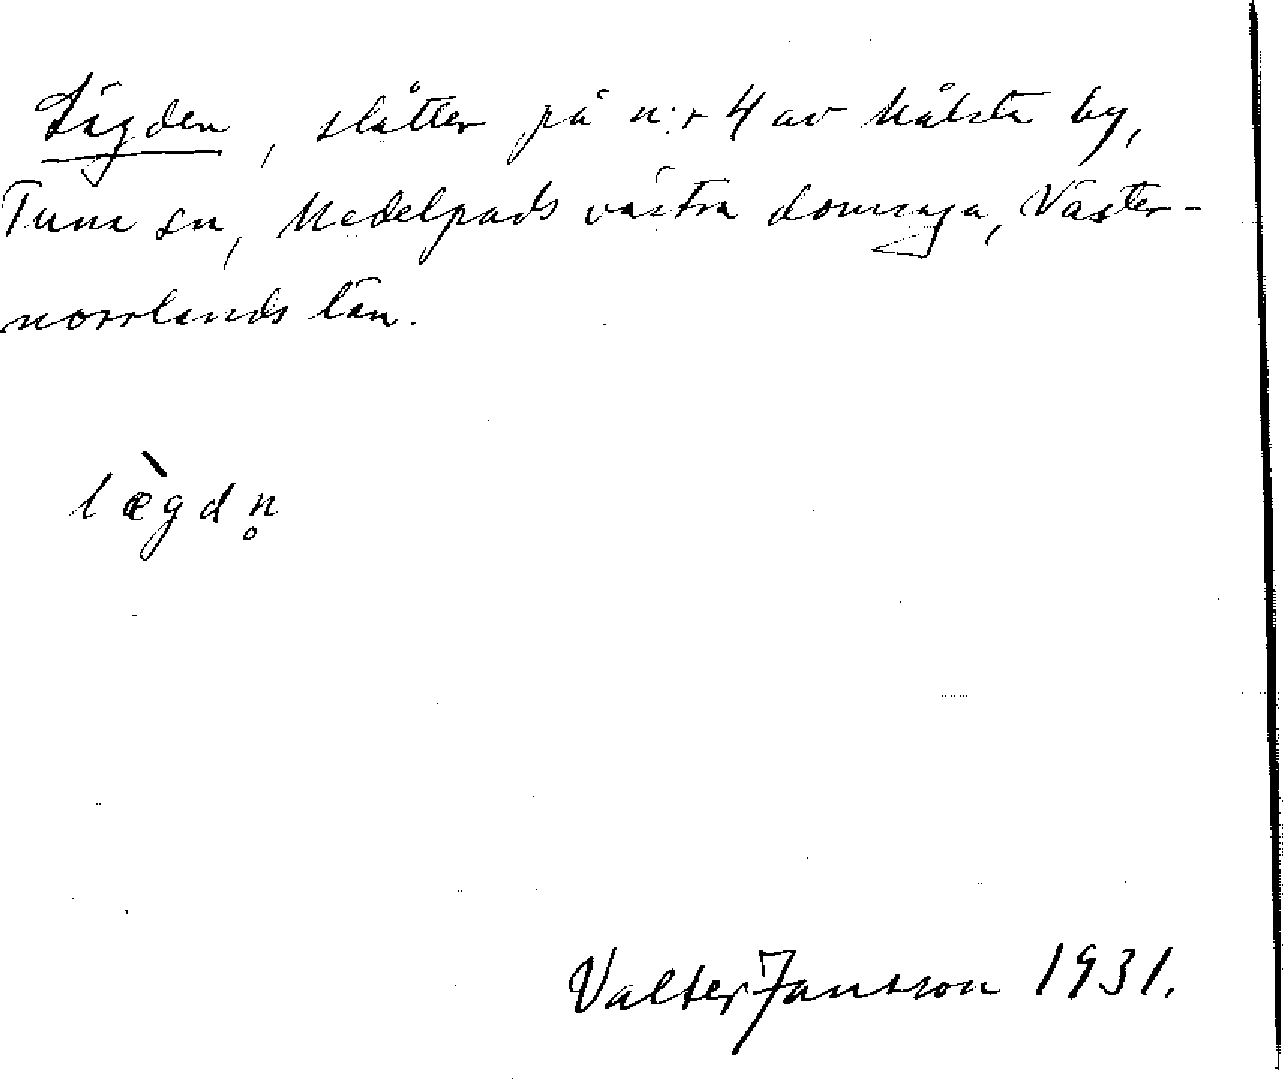 Lägden, slåtter på n:r 4 av Målsta by,
Tuna sn, Medelpads västra domsaga, Väster-
norrlands län.
læ̀gdn̥
Valter Jansson 1931.